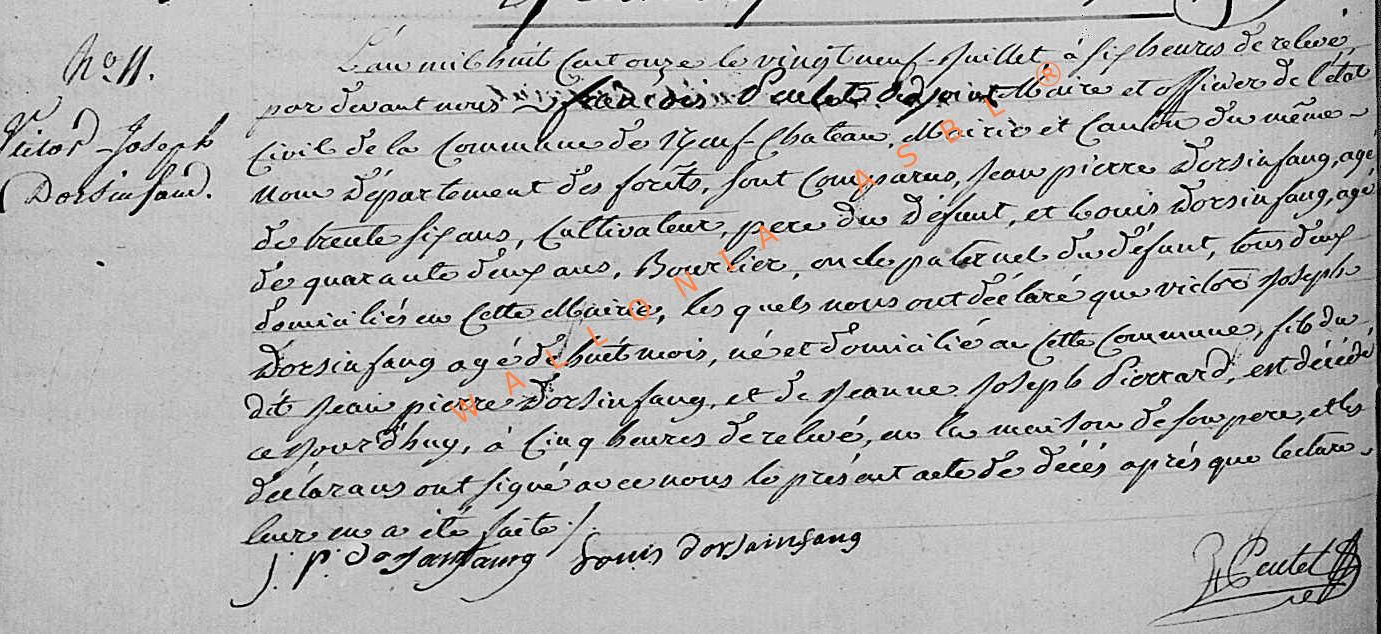 No. 11.
Victor Joseph
Dorsinfand.
L'an mil huit cent onze le vingt neuf Juillet, à six heures de relevé,
par devant nous françois Poulet adjoint Maire et officier de l'état
Civil de la Commune de Neuf-Chateau, Mairie et Canton du même
nom Département des forêts, sont comparus, Jean pierre Dorsinfang, agé
de trente six ans, Cultivateur, pere du défunt, et Louis Dorsinfang, agé
de quarante deux ans, Bourlier, oncle paternel du défunt, tous deux
domiciliés en Cette Mairie, les quels nous ont déclaré que victor Joseph
Dorsinfang agé de huit mois, né et domicilié en Cette Commune, fils du
dit Jean pierre Dorsinfang, et de Jeanne Joseph Pierrard, est décédé
ce Jourd'huy, à Cinq heures de relevé, en la maison de son pere, et les
déclarans ont signé avec nous le présent acte de décés après que lecture
leur en a été faite ./.
j. p. dorsainfang Louis dorsainfang
WALLONIA ASBL ®